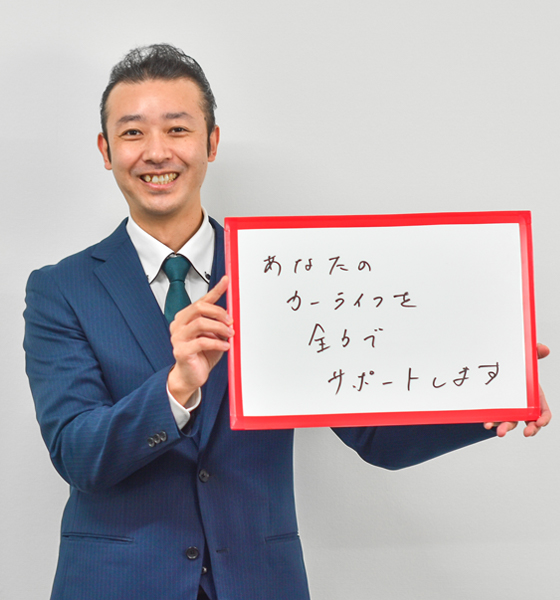 あなたの
カーライフを
全力で
サポートします